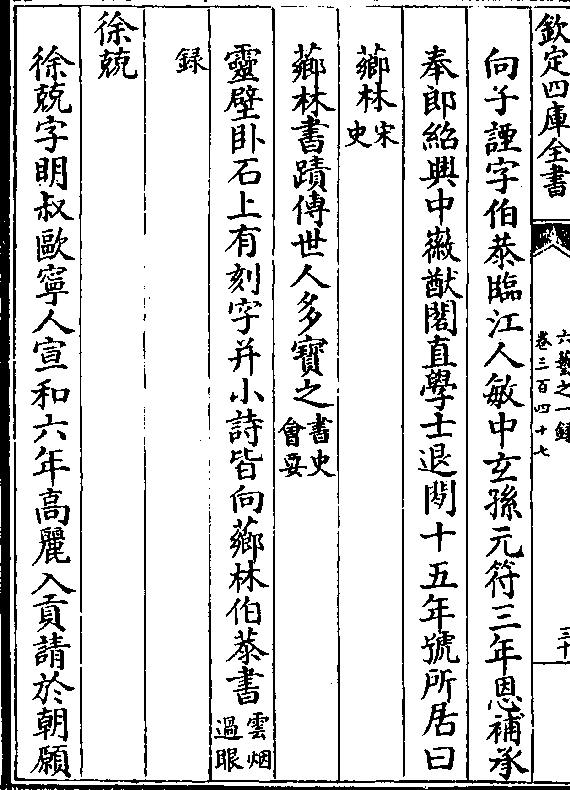 欽定四庫全書
六藝之一錄
卷三百四十七
三十
向子諲字伯恭臨江人敏中玄孫元符三年恩補承
奉郎紹興中徽猷閣直學士退閒十五年號所居曰
薌林宋史
薌林書蹟傳世人多寶之書史會要
靈壁卧石上有刻字并小詩皆向薌林伯恭書雲烟過眼
録
徐兢
徐兢字明叔歐寧人宣和六年高麗入貢請於朝願